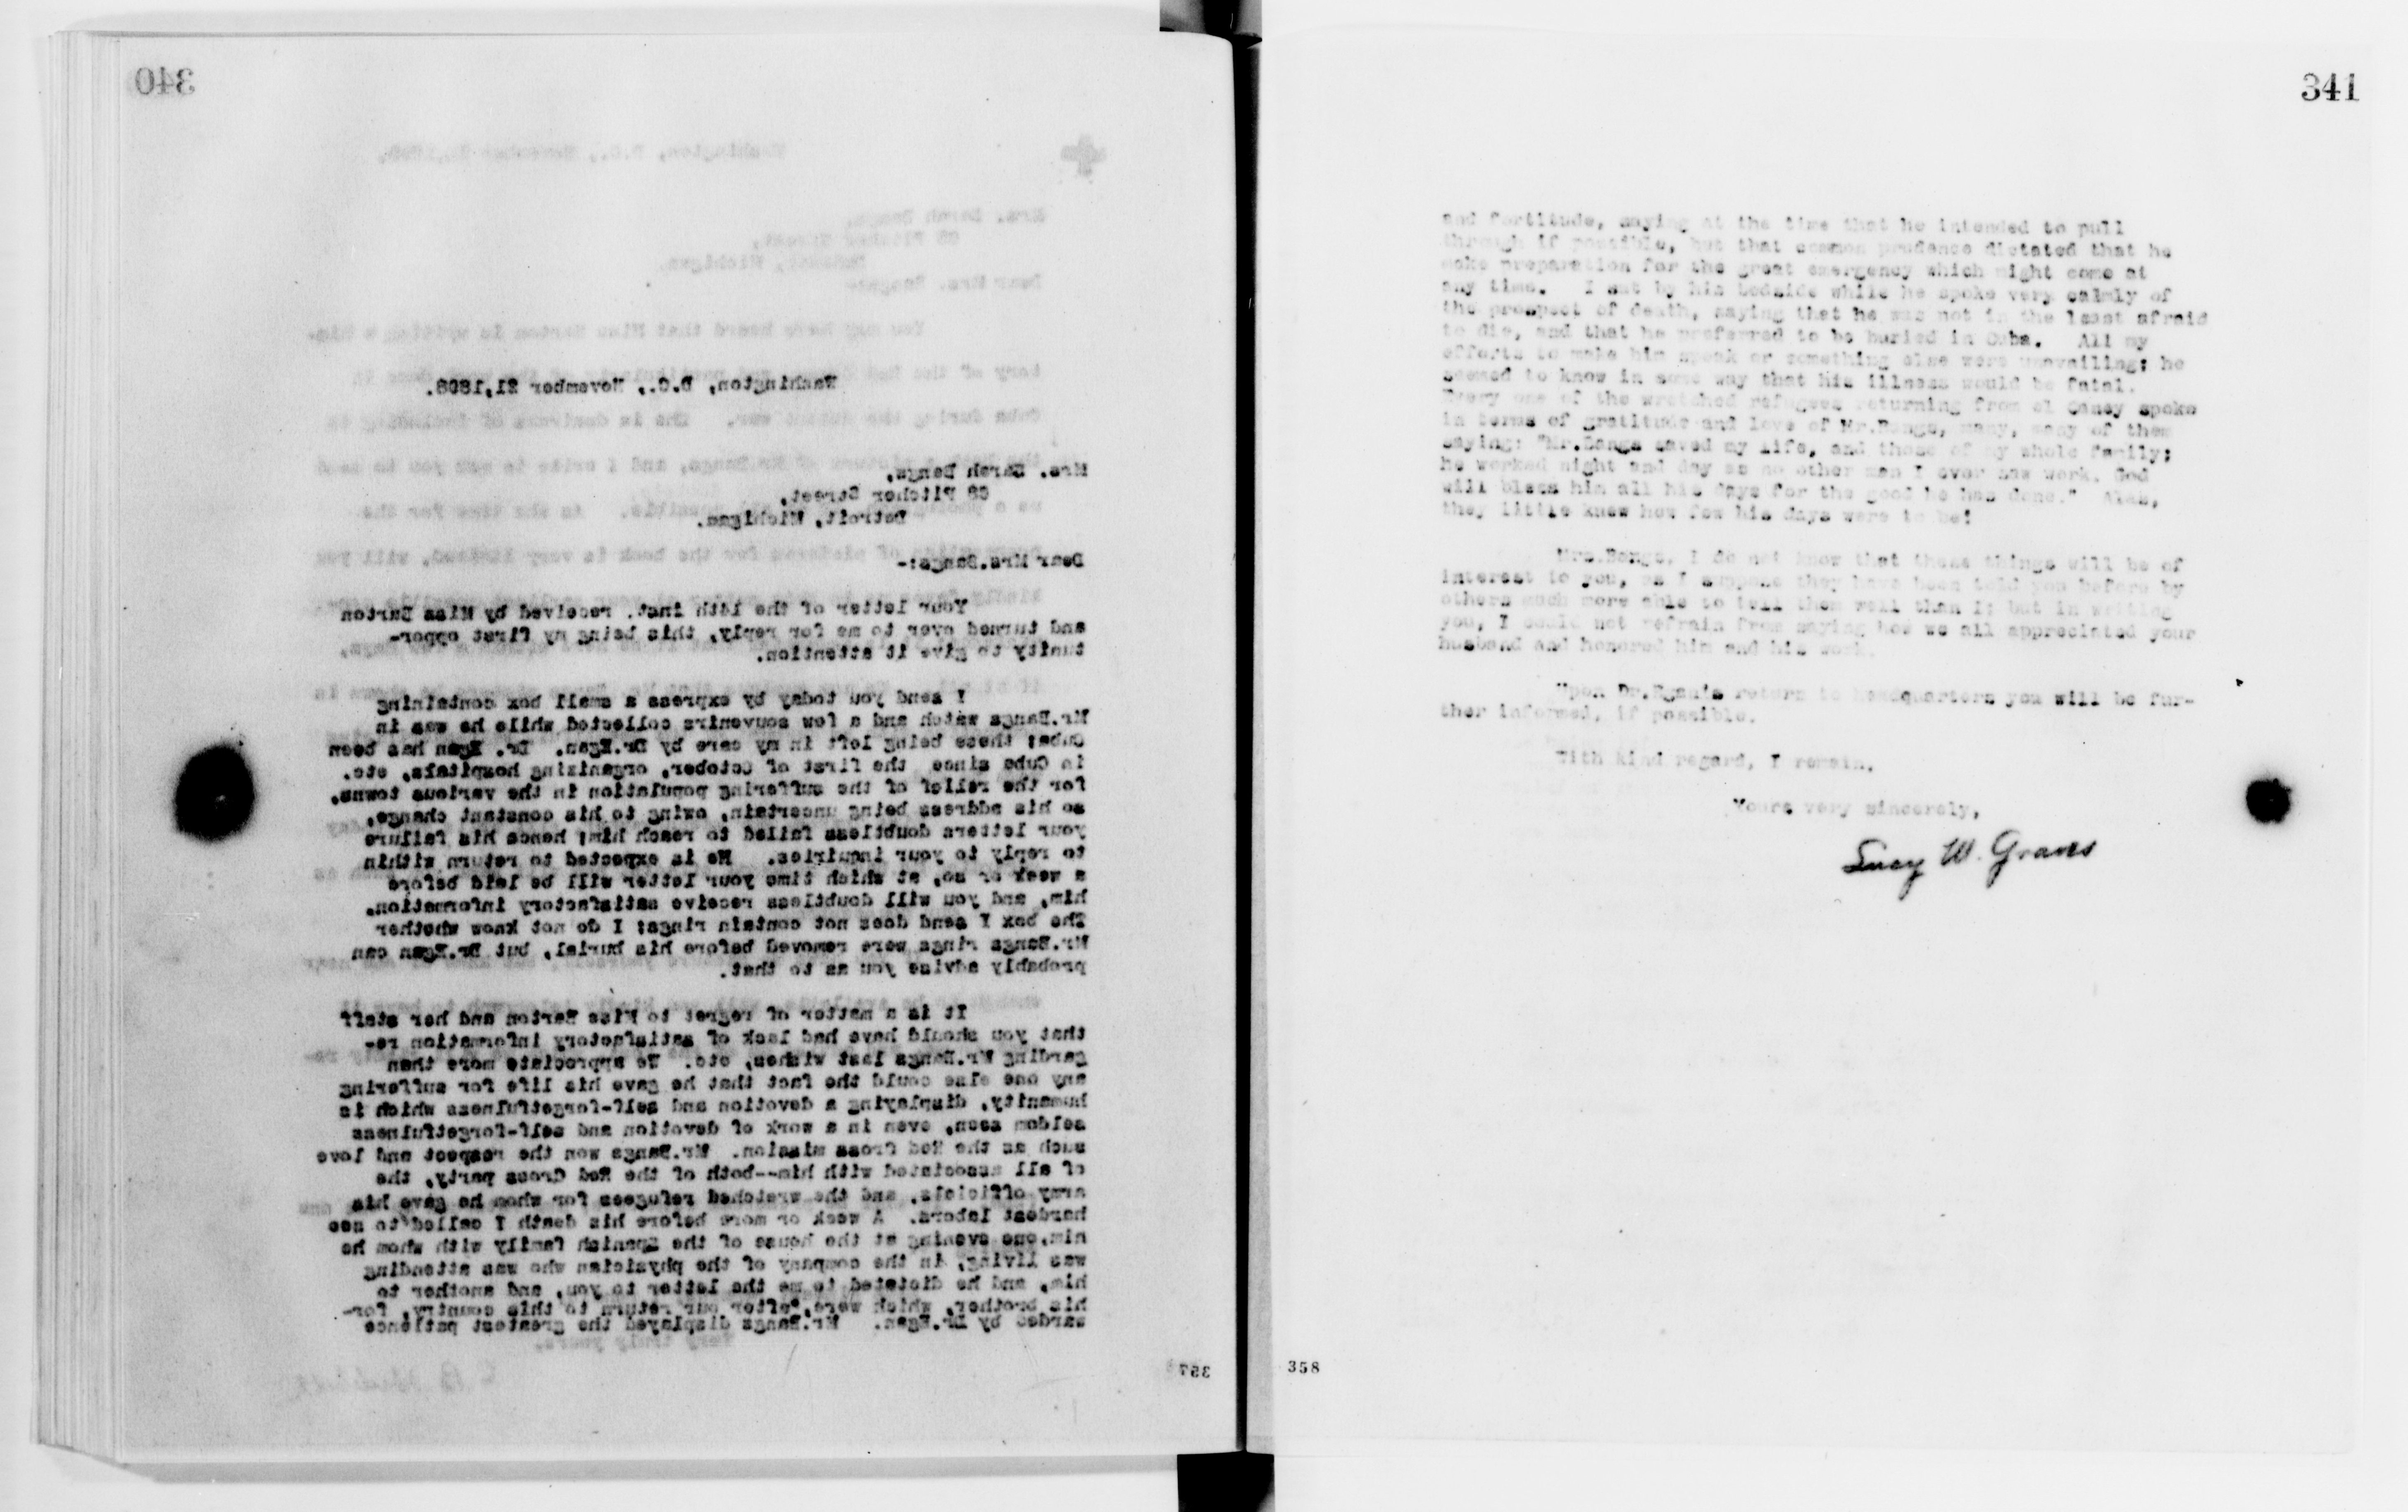 340
Washington, D.C., November 21,1898.
Mrs. Sarah Bangs,
68 Pitcher Street,
Detroit, Michigan.
Dear Mrs.Bangs:-
Your letter of the 14th inst. received by Miss Barton
and turned over to me for reply, this being my first oppor-
tunity to give it attention.
I send you today by express a small box containing
Mr.Bangs watch and a few souvenirs collected while he was in
Cuba; these being left in my care by Dr.Egan. Dr. Egan has been
in Cuba since the first of October, organizing hospitals, etc.
for the relief of the suffering population in the various towns,
so his address being uncertain, owing to his constant change,
your letters doubtless failed to reach him; hence his failure
to reply to your inquiries. He is expected to return within
a week or so, at which time your letter will be laid before
him, and you will doubtless receive satisfactory information.
The box I send does not contain rings; I do not know whether
Mr.Bangs rings were removed before his burial, but Dr.Egan can
probably advise you as to that.
It is a matter of regret to Miss Barton and her staff
that you should have had lack of satisfactory information re-
garding Mr.Bangs last wishes, etc. We appreciate more than
any one else could the fact that he gave his life for suffering
humanity, displaying a devotion and self-forgetfulness which is
seldom seen, even in a work of devotion and self-forgetfulness
such as the Red Cross mission. Mr.Bangs won the respect and love
of all associated with him--both of the Red Cross party, the
army officials, and the wretched refugees for whom he gave his
hardest labors. A week or more before his death I called to see
him,one evening at the house of the Spanish family with whom he
was living, in the company of the physician who was attending
him, and he dictated to me the letter to you, and another to
his brother, which were, after our return to this country, for-
warded by Dr.Egan. Mr.Bangs displayed the greatest patience
357
341
and fortitude, saying at the time that he intended to pull
through if possible, but that common prudence dictated that he
make preparation for the great emergency which might come at
any time. I sat by his bedside while he spoke very calmly of
the prospect of death, saying that he was not in the least afraid
to die, and that he preferred to be buried in Cuba. All my
efforts to make him speak or something else were unavailing; he
seemed to know in some way that his illness would be fatal.
Every one of the wretched refugees returning from el Caney spoke
in terms of gratitude and love of Mr.Bangs, many, many of them
saying: "Mr.Bangs saved my life, and those of my whole family;
he worked night and day as no other man I ever saw work. God
will bless him all his days for the good he has done." Alas,
they little knew how few his days were to be!
Mrs.Bangs, I do not know that these things will be of
interest to you, as I suppose they have been told you before by
others much more able to tell them well than I; but in writing
you, I could not refrain from saying how we all appreciated your
husband and honored him and his work.
Upon Dr.Egan's return to headquarters you will be fur-
ther informed, if possible.
With kind regard, I remain.
Yours very sincerely,
Lucy W. Graves
358